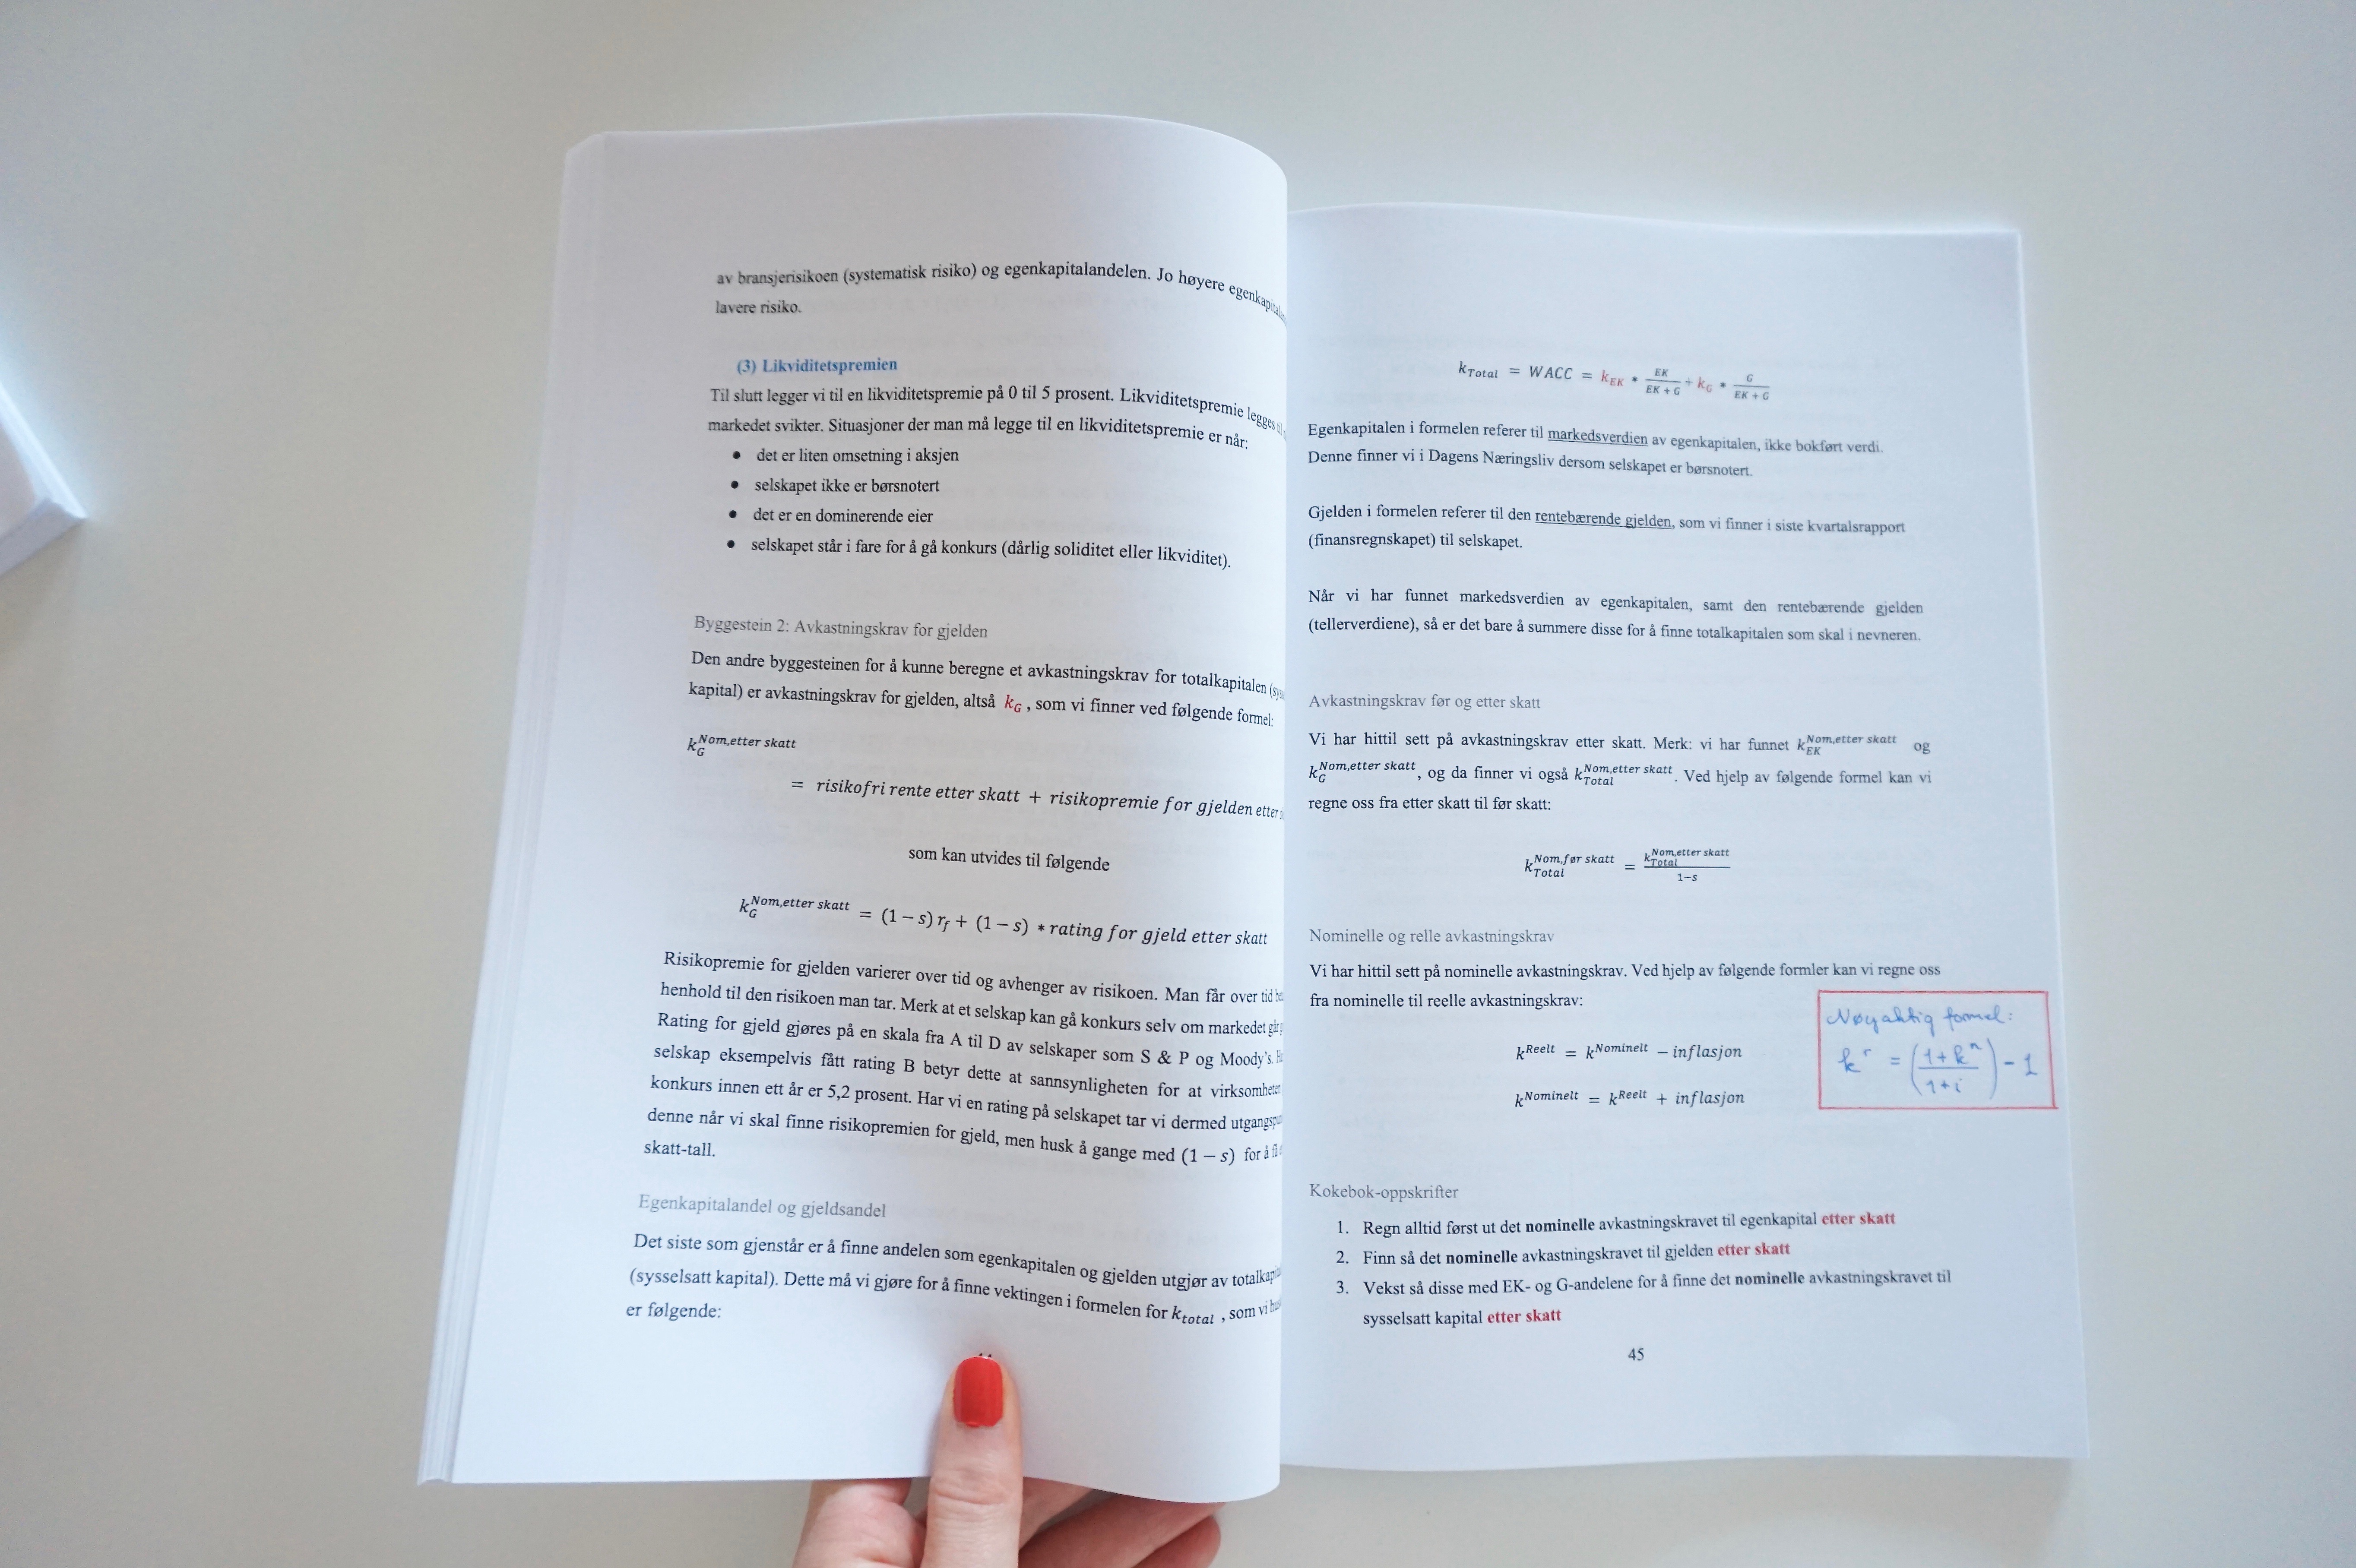 av bransjerisikoen (systematisk risiko) og egenkapitalandelen. Jo høyere
lavere risiko.
(3) Likviditetspremien
Til slutt legger vi til en likviditetspremie på 0 til 5 prosent. Likviditetspremie legges
markedet svikter. Situasjoner der man må legge til en likviditetspremie er når:
• det er liten omsetning i aksjen
• selskapet ikke er børsnotert
• det er en dominerende eier
• selskapet står i fare for å gå konkurs (dårlig soliditet eller likviditet).
Byggestein 2: Avkastningskrav for gjelden
Den andre byggesteinen for å kunne beregne et avkastningskrav for totalkapitalen
kapital) er avkastningskrav for gjelden, altså k_G , som vi finner ved følgende formel:
k_G^Nom,etter skatt
= risikofri rente etter skatt + risikopremie for gjelden etter
som kan utvides til følgende
k_G^Nom,etter skatt = (1 − s) r_f + (1 − s) * rating for gjeld etter skatt
Risikopremie for gjelden varierer over tid og avhenger av risikoen. Man får over tid
henhold til den risikoen man tar. Merk at et selskap kan gå konkurs selv om markedet går
Rating for gjeld gjøres på en skala fra A til D av selskaper som S & P og Moody's.
selskap eksempelvis fått rating B betyr dette at sannsynligheten for at
konkurs innen ett år er 5,2 prosent. Har vi en rating på selskapet tar vi dermed
denne når vi skal finne risikopremien for gjeld, men husk å gange med (1 − s) for å
skatt-tall.
Egenkapitalandel og gjeldsandel
Det siste som gjenstår er å finne andelen som egenkapitalen og gjelden utgjør av
(sysselsatt kapital). Dette må vi gjøre for å finne vektingen i formelen for k_total , som vi
er følgende:
k_Total = WACC = k_EK * EK/(EK + G) + k_G * G/(EK + G)
Egenkapitalen i formelen referer til markedsverdien av egenkapitalen, ikke bokført verdi.
Denne finner vi i Dagens Næringsliv dersom selskapet er børsnotert.
Gjelden i formelen referer til den rentebærende gjelden, som vi finner i siste kvartalsrapport
(finansregnskapet) til selskapet.
Når vi har funnet markedsverdien av egenkapitalen, samt den rentebærende gjelden
(tellerverdiene), så er det bare å summere disse for å finne totalkapitalen som skal i nevneren.
Avkastningskrav før og etter skatt
Vi har hittil sett på avkastningskrav etter skatt. Merk: vi har funnet k_EK^Nom,etter skatt og
k_G^Nom,etter skatt, og da finner vi også k_Total^Nom,etter skatt. Ved hjelp av følgende formel kan vi
regne oss fra etter skatt til før skatt:
k_Total^Nom,før skatt = k_Total^Nom,etter skatt/(1−s)
Nominelle og relle avkastningskrav
Vi har hittil sett på nominelle avkastningskrav. Ved hjelp av følgende formler kan vi regne oss
fra nominelle til reelle avkastningskrav:
k^Reelt = k^Nominelt − inflasjon
k^Nominelt = k^Reelt + inflasjon
Nøyaktig formel:
k^r = ((1+k^n)/(1+i)) − 1
Kokebok-oppskrifter
1. Regn alltid først ut det nominelle avkastningskravet til egenkapital etter skatt
2. Finn så det nominelle avkastningskravet til gjelden etter skatt
3. Vekst så disse med EK- og G-andelene for å finne det nominelle avkastningskravet til
sysselsatt kapital etter skatt
45